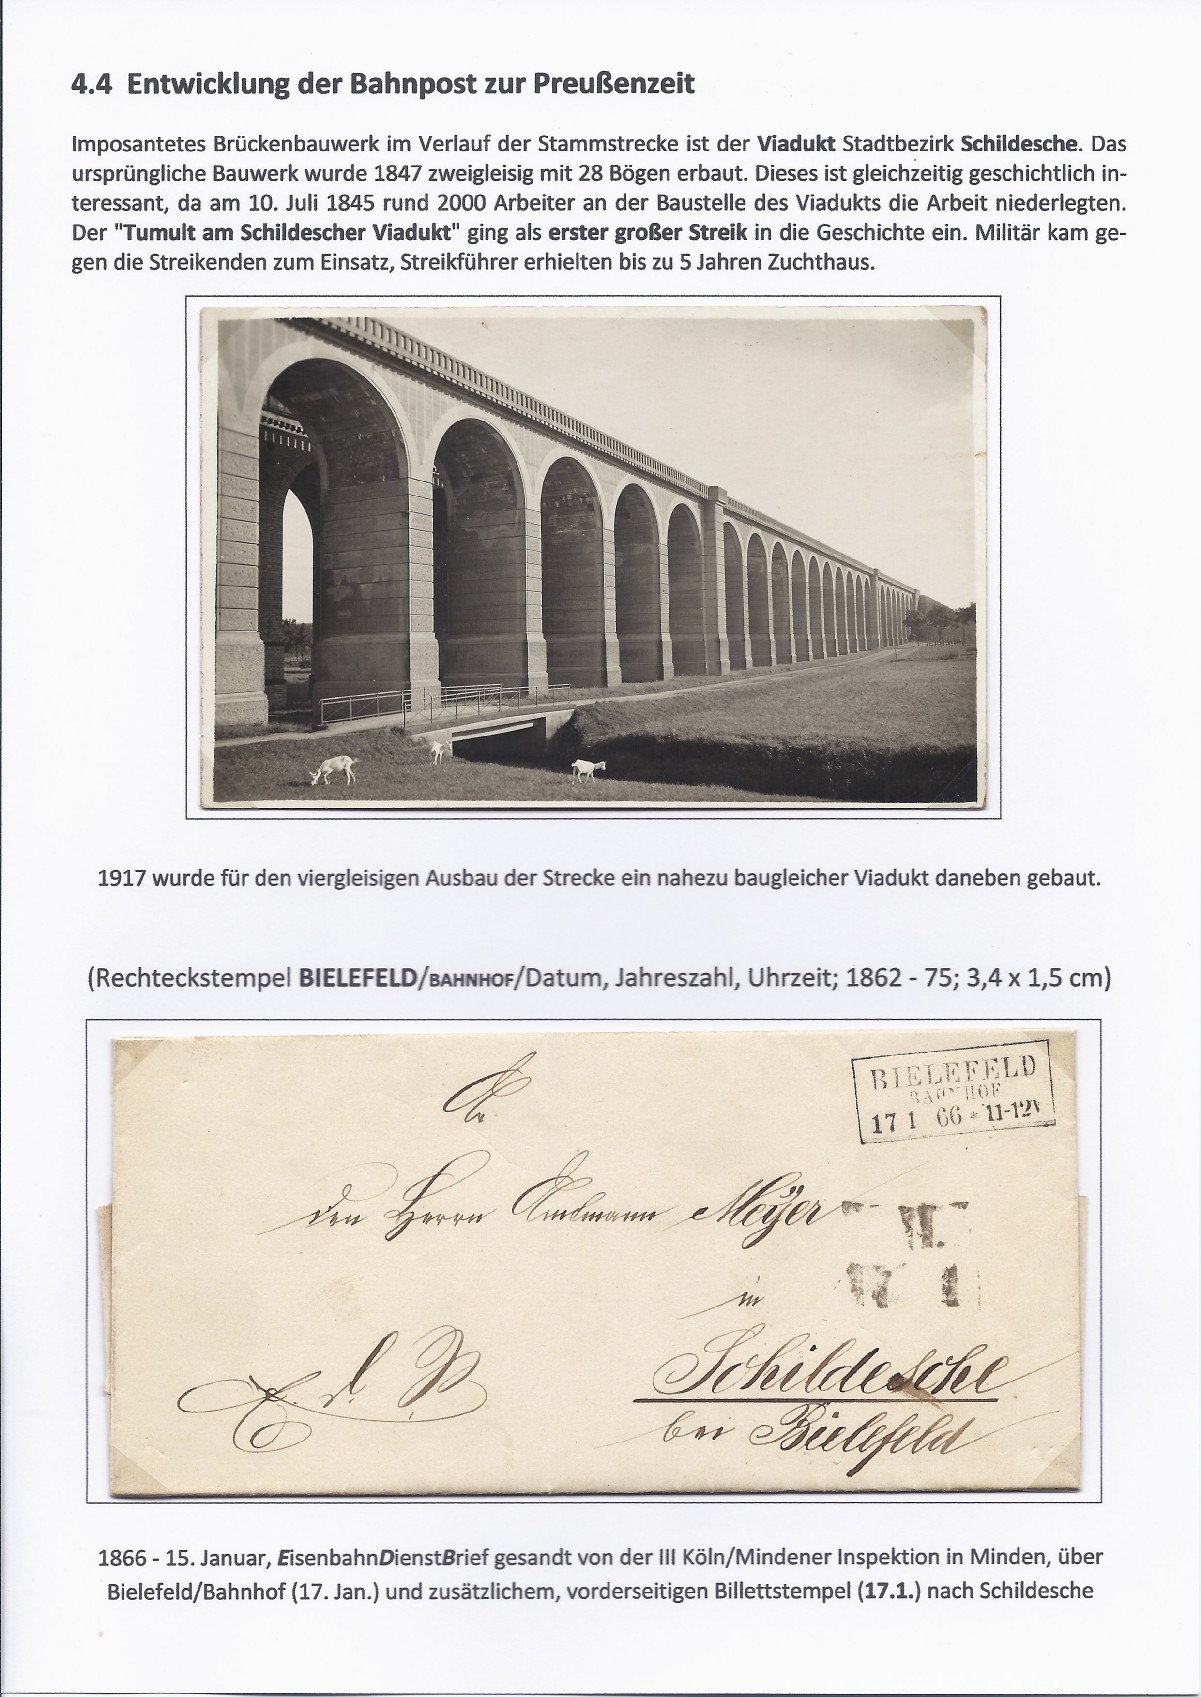 4.4 Entwicklung der Bahnpost zur Preußenzeit
Imposantetes Brückenbauwerk im Verlauf der Stammstrecke ist der Viadukt Stadtbezirk Schildesche. Das
ursprüngliche Bauwerk wurde 1847 zweigleisig mit 28 Bögen erbaut. Dieses ist gleichzeitig geschichtlich in-
teressant, da am 10. Juli 1845 rund 2000 Arbeiter an der Baustelle des Viadukts die Arbeit niederlegten.
Der "Tumult am Schildescher Viadukt" ging als erster großer Streik in die Geschichte ein. Militär kam ge-
gen die Streikenden zum Einsatz, Streikführer erhielten bis zu 5 Jahren Zuchthaus.
1917 wurde für den viergleisigen Ausbau der Strecke ein nahezu baugleicher Viadukt daneben gebaut.
(Rechteckstempel BIELEFELD/BAHNHOF/Datum, Jahreszahl, Uhrzeit; 1862 - 75; 3,4 x 1,5 cm)
BIELEFELD
BAHNHOF
17 1 66 * 11-12V
An
den Herrn Amtmann Meÿer
in
Schildesche
bei Bielefeld
E. d. B.
17 1
1866 - 15. Januar, EisenbahnDienstBrief gesandt von der III Köln/Mindener Inspektion in Minden, über
Bielefeld/Bahnhof (17. Jan.) und zusätzlichem, vorderseitigen Billettstempel (17.1.) nach Schildesche